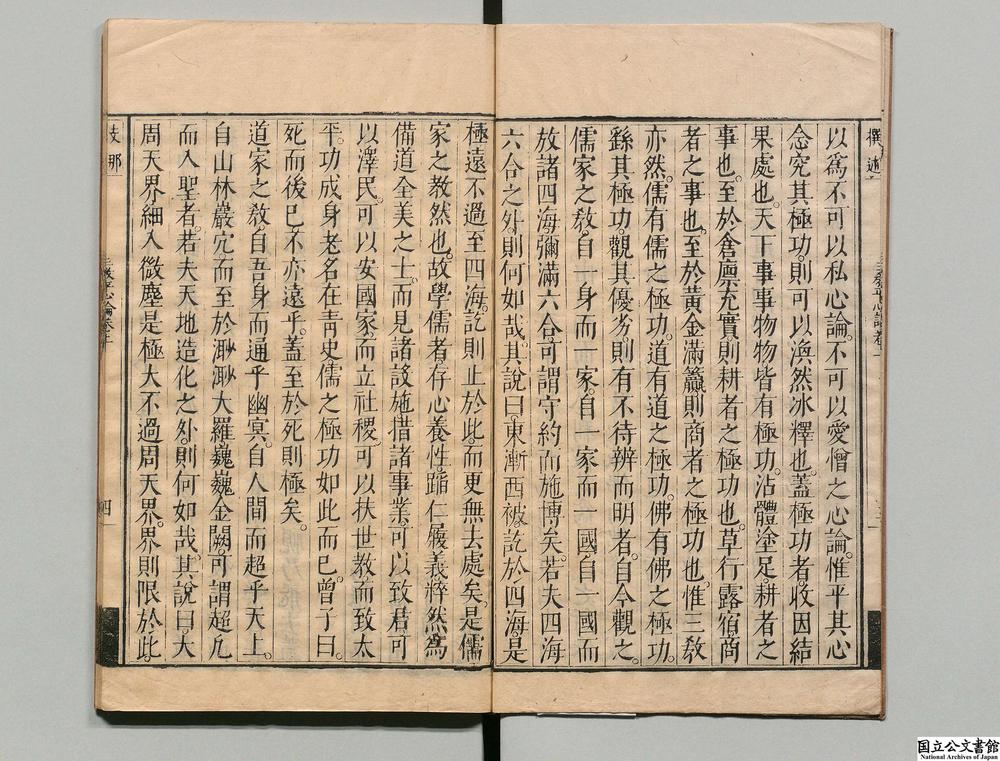 撰述
以爲不可以私心論。不可以愛憎之心論。惟平其心
念究其極功。則可以渙然冰釋也。蓋極功者。收因結
果處也。天下事事物物皆有極功。沾體塗足。耕者之
事也。至於倉廩充實。則耕者之極功也。草行露宿。商
者之事也。至於黃金滿籯。則商者之極功也。惟三教
亦然。儒有儒之極功。道有道之極功。佛有佛之極功。
繇其極功。觀其優劣。則有不待辨而明者。自今觀之。
儒家之教。自一身而一家。自一家而一國。自一國而
放諸四海彌滿六合。可謂守約而施博矣。若夫四海
六合之外。則何如哉。其說曰。東漸西被。訖於四海。是
極遠不過至四海。訖則止於此。而更無去處矣。是儒
家之教然也。故學儒者。存心養性。蹈仁履義。粹然爲
備道全美之士。而見諸設施。措諸事業。可以致君。可
以澤民。可以安國家。而立社稷。可以扶世教而致太
平。功成身老。名在靑史。儒之極功如此而已。曾子曰。
死而後已。不亦遠乎。蓋至於死則極矣。
道家之教。自吾身而通乎幽冥。自人間而超乎天上。
自山林巖宂。而至於渺渺大羅巍巍金闕。可謂超凡
而入聖者。若夫天地造化之外。則何如哉。其說曰。大
周天界。細入微塵。是極大不過周天界。界則限於此。
支那
三教平心論卷上
四
国立公文書館
National Archives of Japan